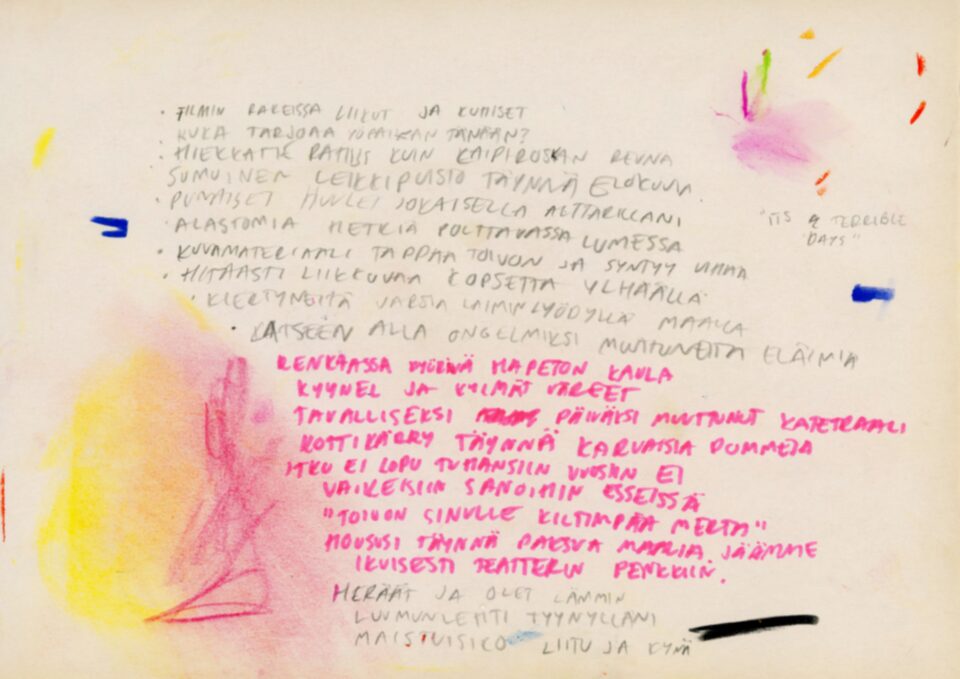 · FILMIN RAKEISSA LIIKUT JA KUMISET
· KUKA TARJOAA YÖPAIKAN TÄNÄÄN?
· HIEKKATIE RAHISEE KUIN KAIPIROSKAN REUNA
SUMUINEN LEIKKIPUISTO TÄYNNÄ ELOKUVA
· PUNAISET HUULET JOKAISELLA ALTTARILLANI
· ALASTOMIA HETKIÄ POLTTAVASSA LUMESSA
"ITS A TERRIBLE
DAYS"
· KUVAMATERIAALI TAPPAA TOIVON JA SYNTYY VIHAA
· HITAASTI LIIKKUVAA KOPSETTA YLHÄÄLLÄ
· KIERTYNEITÄ VARSIA LAIMINLYÖDYLLÄ MAALLA
· KATSEEN ALLA ONGELMIKSI MUUTTUNEITA ELÄIMIÄ
RENKAASSA PYÖRIVÄ HAPETON KAULA
KYYNEL JA KYLMÄT VÄREET
TAVALLISEKSI PÄIVÄKSI MUUTTUNUT KATETRAALI
KOTTIKÄRRY TÄYNNÄ KARVAISIA POMMEJA
ITKU EI LOPU TUHANSIIN VUOSIIN EI
VAIKEISIIN SANOIHIN ESSEISSÄ
"TOIVON SINULLE KILTIMPÄÄ MERTA"
HOUSUSI TÄYNNÄ PAKSUA MAALIA, JÄÄMME
IKUISESTI TEATTERIN PENKKIIN.
HERÄÄT JA OLET LÄMMIN
LUUMUNLEHTI TYYNYLLÄNI
MAISTUISIKO LIITU JA KYNÄ